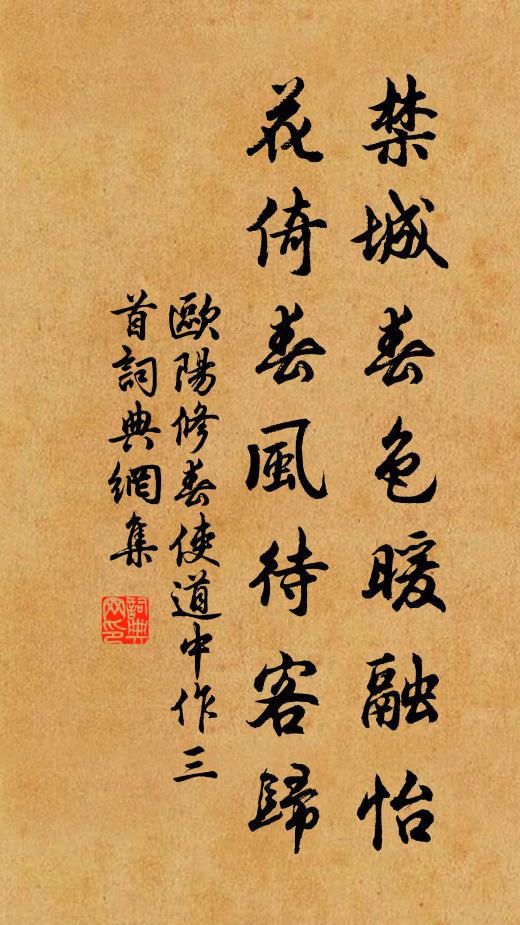 禁城春色暖融怡
花倚春風待客歸
歐陽修春使道中作三
首詞典網集
詞典
网印